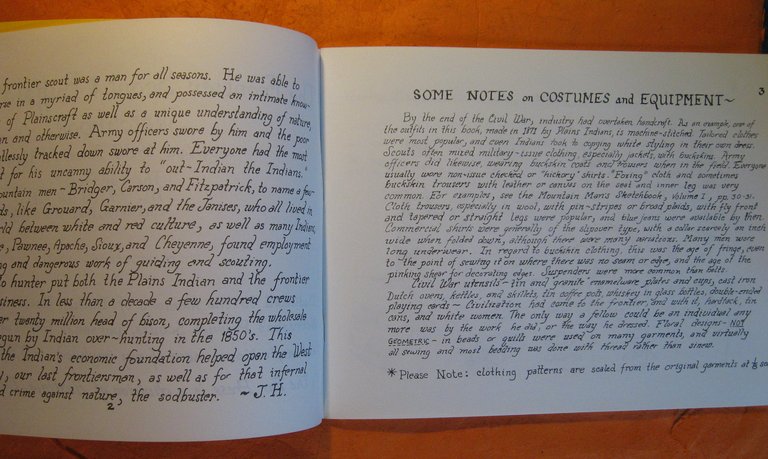 frontier scout was a man for all seasons. He was able to
in a myriad of tongues, and possessed an intimate know-
of Plainscraft as well as a unique understanding of nature,
and otherwise. Army officers swore by him and the poor
tracked down swore at him. Everyone had the most
for his uncanny ability to "out-Indian the Indians."
men - Bridger, Carson, and Fitzpatrick, to name a few
like Grouard, Garnier, and the Janises, who all lived in
between white and red culture, as well as many Indians,
Pawnee, Apache, Sioux, and Cheyenne, found employment
and dangerous work of guiding and scouting.
hunter put both the Plains Indian and the frontier
In less than a decade a few hundred crews
twenty million head of bison, completing the wholesale
by Indian over-hunting in the 1850's. This
the Indian's economic foundation helped open the West
our last frontiersman, as well as for that infernal
crime against nature, the sodbuster. ~ J.H.
2
3
SOME NOTES on COSTUMES and EQUIPMENT~
By the end of the Civil War, industry had overtaken handcraft. As an example, one of
the outfits in this book, made in by Plains Indians, is machine-stitched. Tailored clothes
were most popular, and even Indians took to copying white styling in their own dress.
Scouts often mixed military-issue clothing, especially jackets, with buckskins. Army
officers did likewise, wearing buckskin coats and trousers when in the field. Everyone
usually wore non-issue checked or "hickory" shirts. "Foxing" cloth and sometimes
buckskin trousers with leather or canvas on the seat and inner leg was very
common. For examples, see the Mountain Man's Sketchbook, Volume 1, pp. 30-31.
Cloth trousers, especially in wool, with pin-stripes or broad plaids, with fly front
and tapered or straight legs were popular, and blue jeans were available by then.
Commercial shirts were generally of the slipover type, with a collar scarcely an inch
wide when folded down, although there were many variations. Many men wore
long underwear. In regard to buckskin clothing, this was the age of fringe, even
to the point of sewing it on where there was no seam or edge, and the age of the
pinking shear for decorating edges. Suspenders were more common than belts.
Civil War utensils - tin and granite enamelware plates and cups, cast iron
Dutch ovens, kettles, and skillets, tin coffee pot, whiskey in glass bottles, double-ended
playing cards - civilization had come to the frontier, and with it, hardtack, tin
cans, and white women. The only way a fellow could be an individual any
more was by the work he did, or the way he dressed. Floral designs - NOT
GEOMETRIC - in beads or quills were used on many garments, and virtually
all sewing and most beading was done with thread rather than sinew.
*Please Note: clothing patterns are scaled from the original garments at